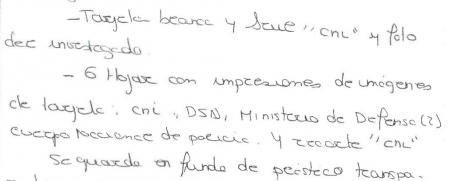 - Tarjeta blanca y "CNI" y foto
del investigado.
- 6 Hojas con impresiones de imágenes
de tarjeta: cni, DSN, Ministerio de Defensa (2)
cuerpo nacional de policía. y recorte "CNI"
Se guarda en funda de plástico transpa.